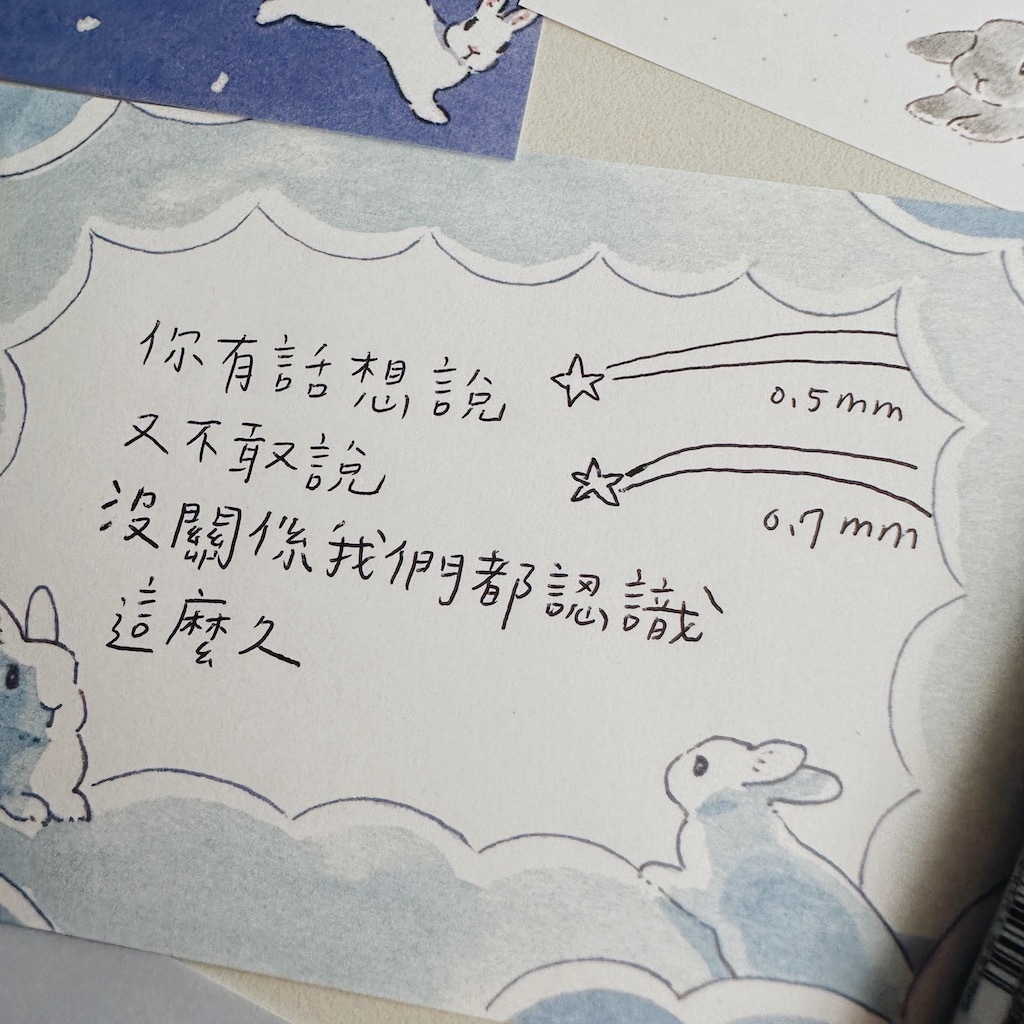 你有話想說
又不敢說
沒關係我們都認識
這麼久
0.5mm
0.7mm